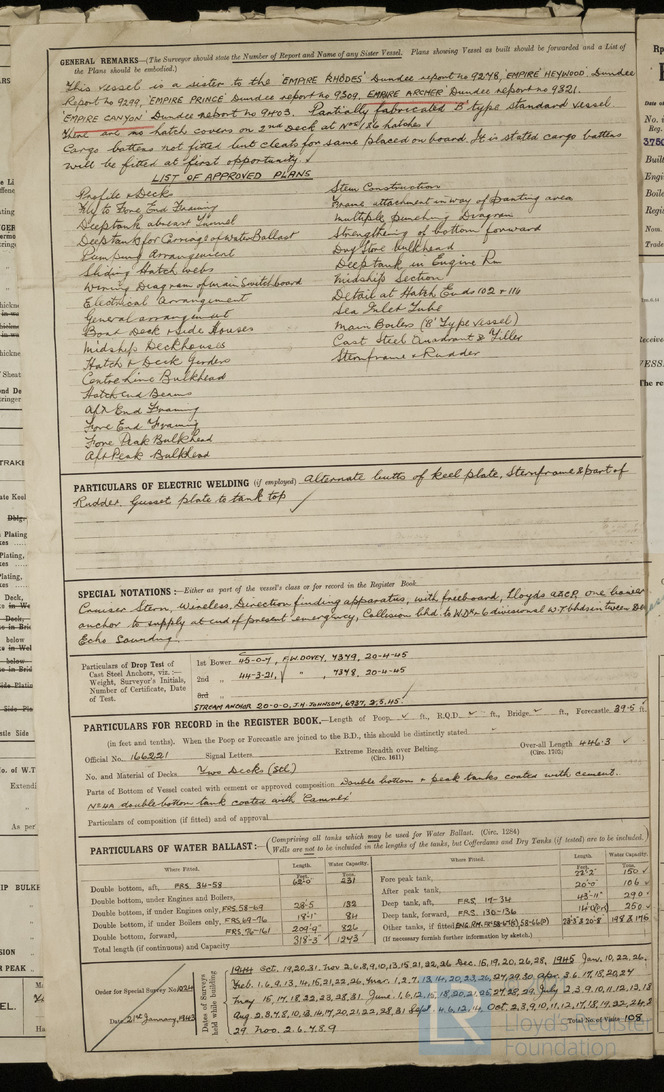 GENERAL REMARKS—(The Surveyor should state the Number of Report and Name of any Sister Vessel. Plans showing Vessel as built should be forwarded and a List of
the Plans should be embodied.)
This vessel is a sister to the 'EMPIRE RHODES' Dundee report no 9278, 'EMPIRE HEYWOOD' Dundee
Report no 9299, 'EMPIRE PRINCE' Dundee report no 9309. EMPIRE ARCHER Dundee report no 9321.
'EMPIRE CANYON' Dundee report no 9403. Partially fabricated 'B' type standard vessel
There are no hatch covers on 2nd Deck at Nos 1/26 hatches
Cargo battens not fitted but cleats for same placed on board. It is stated cargo battens
will be fitted at first opportunity.
LIST OF APPROVED PLANS
Profile & Decks
Fore End Framing
Deeptank abreast Tunnel
Deeptank for Carriage of Water Ballast
Pumping Arrangement
Sliding Hatch webs
Wiring Diagram of main Switchboard
Electrical Arrangement
General arrangement
Boat Deck & Side Houses
Midship Deckhouses
Hatch & Deck Girders
Centre Line Bulkhead
Hatch End Beams
Aft End Framing
Fore End Framing
Fore Peak Bulkhead
Aft Peak Bulkhead
Stem Construction
Frame attachment in way of panting area
Multiple punching Diagram
Strengthening of bottom forward
Dry Store bulkhead
Deeptank in Engine Rm
Midship Section
Detail at Hatch Ends 102 & 116
Sea Inlet Tube
Main Boilers ('B' Type vessel)
Cast Steel Quadrant & Tiller
Sternframe & Rudder
PARTICULARS OF ELECTRIC WELDING (if employed) Alternate butts of keel plate, Sternframe & part of
Rudder. Gusset plate to tank top
SPECIAL NOTATIONS:—Either as part of the vessel's class or for record in the Register Book
Cruiser Stern, Wireless, Direction finding apparatus, with freeboard, Lloyds A&CP, one bower
anchor to supply at end of present emergency, Collision bhd to W.Dk & 6 divisional W.T bhds in tween
Echo Sounding.
Particulars of Drop Test of
Cast Steel Anchors, viz.:—
Weight, Surveyor's Initials,
Number of Certificate, Date
of Test.
1st Bower 45-0-7, F.W. DOVEY, 7379, 20-4-45
2nd „ 44-3-21, „ , 7378, 20-4-45
3rd „
STREAM ANCHOR 20-0-0, J.H. JOHNSON, 6937, 2.5.45
PARTICULARS FOR RECORD in the REGISTER BOOK.—Length of Poop ft., R.Q.D. ft., Bridge ft., Forecastle 39.5 ft.
(in feet and tenths). When the Poop or Forecastle are joined to the B.D., this should be distinctly stated
Official No. 166221 Signal Letters Extreme Breadth over Belting Over-all Length 446.3
(Circ. 1611) (Circ. 1703)
No. and Material of Decks Two Decks (Stl)
Parts of Bottom of Vessel coated with cement or approved composition Double bottom & peak tanks coated with cement.
No 4A double bottom tank coated with 'Camrex'
Particulars of composition (if fitted) and of approval
PARTICULARS OF WATER BALLAST:— (Comprising all tanks which may be used for Water Ballast. (Circ. 1284)
Wells are not to be included in the lengths of the tanks, but Cofferdams and Dry Tanks (if tested) are to be included.)
Where Fitted. Length. Water Capacity. Where Fitted. Length. Water Capacity.
Feet. Tons. Feet. Tons.
Double bottom, aft, FRS. 34-58 62'-0" 231
Double bottom, under Engines and Boilers,
Double bottom, if under Engines only, FRS. 58-69 28-5 132
Double bottom, if under Boilers only, FRS. 69-76 18'-1" 84
Double bottom, forward, FRS. 76-161 209'-9" 826
Total length (if continuous) and Capacity 318'-3" 1273
Fore peak tank, 22'-2" 150
After peak tank, 20'-0" 106
Deep tank, aft, FRS. 17-34 43'-11" 290
Deep tank, forward, FRS. 130-136 250
Other tanks, if fitted 198 & 176
(If necessary furnish further information by sketch.)
Order for Special Survey No. 1024
Date 21st January, 1943
Dates of Surveys held while building
1944 Oct. 19,20,31. Nov 2,6,8,9,10,13,15,21,22,26 Dec. 15,19,20,26,28, 1945 Jan. 10,22,26.
Feb. 1,6,9,13,14,15,21,22,26, Mar. 1,2,7,13,14,20,23,26,27,29,30 Apr. 3,6,17,18,20,27
May 15,17,18,22,23,28,31 June 1,6,12,15,18,20,21,25,27,28,29. July 2,3,9,10,11,12,13,18
Aug 2,3,7,8,10,13,14,17,20,21,22,28,31 Sept. 4,6,12,14 Oct. 2,3,9,10,11,12,17,18,19,22,24
29. Nov. 2,6,7,8,9
Total No. of Visits 108
Lloyd's Register
Foundation